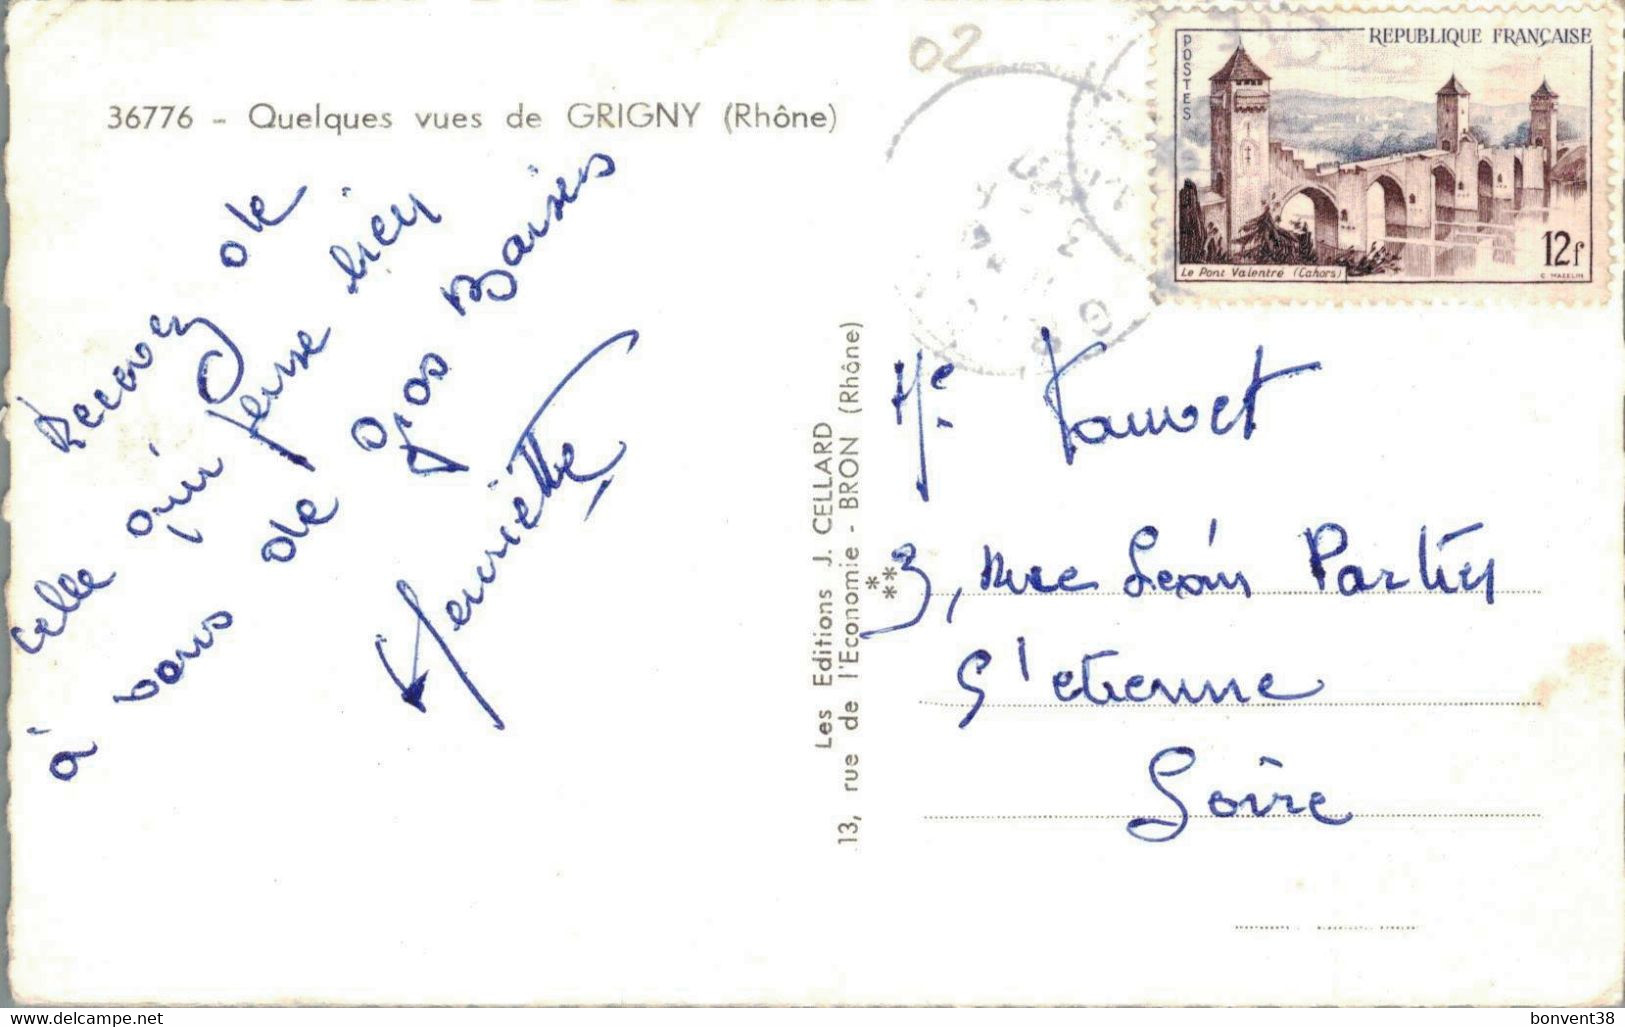 36776 - Quelques vues de GRIGNY (Rhône)
Recevez de
celle qui pense bien
à vous de gros Baisers
Henriette
Les Editions J. CELLARD
13, rue de l'Economie - BRON (Rhône)
02
POSTES
REPUBLIQUE FRANÇAISE
12f
Le Pont Valentré (Cahors)
C. MAZELIN
Me
3, rue Léon
St etienne
Loire
bonvent38